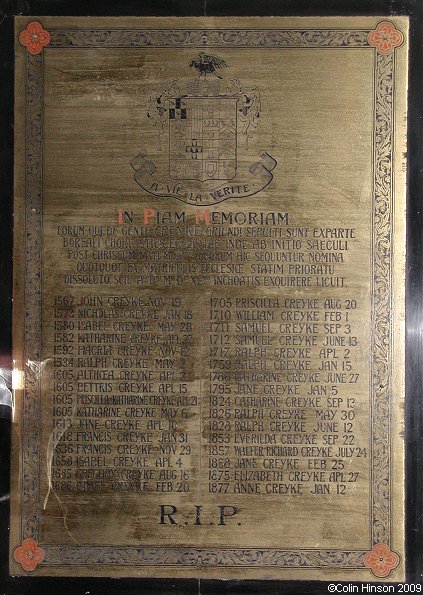 A VIE LA VERITE
IN PIAM MEMORIAM
EORUM QUI DE GENTE CREYKE ORIUNDI SEPULTI SUNT EXPARTE
BOREALI CHORI AB INITIO SAECULI
POST CHRISTUM QUORUM HIC SEQUUNTUR NOMINA
QUOTQUOT EX ECCLESIÆ STATIM PRIORATU
DISSOLUTO INCHOATIS EXQUIRERE LICUIT.
1567 JOHN CREYKE NOV 19
1573 NICHOLAS CREYKE JAN 18
1580 ISABEL CREYKE MAY 28
1582 KATHARINE CREYKE APL
1592 CREYKE NOV
RALPH CREYKE MAY
1605 ALTHŒA CREYKE APL
1605 BETTRIS CREYKE APL 15
1605 PRISCILLA KATHARINE CREYKE APL 21
1605 KATHARINE CREYKE MAY 6
1613 JANE CREYKE APL 16
1618 FRANCIS CREYKE JAN 31
1636 FRANCIS CREYKE NOV 29
1658 ISABEL CREYKE APL 4
GREGORY CREYKE AUG 16
CREYKE FEB 20
1705 PRISCILLA CREYKE AUG 20
1710 WILLIAM CREYKE FEB 1
1711 SAMUEL CREYKE SEP 3
1712 SAMUEL CREYKE JUNE 13
1717 RALPH CREYKE APL 2
1759 RALPH CREYKE JAN 15
1786 KATHARINE CREYKE JUNE 27
1795 JANE CREYKE JAN 5
1824 CATHARINE CREYKE SEP 13
1826 RALPH CREYKE MAY 30
1828 RALPH CREYKE JUNE 12
1853 EVERILDA CREYKE SEP 22
1857 WALTER RICHARD CREYKE JULY 24
1858 JANE CREYKE FEB 25
1875 ELIZABETH CREYKE APL 27
1877 ANNE CREYKE JAN 12
R.I.P.
©Colin Hinson 2009